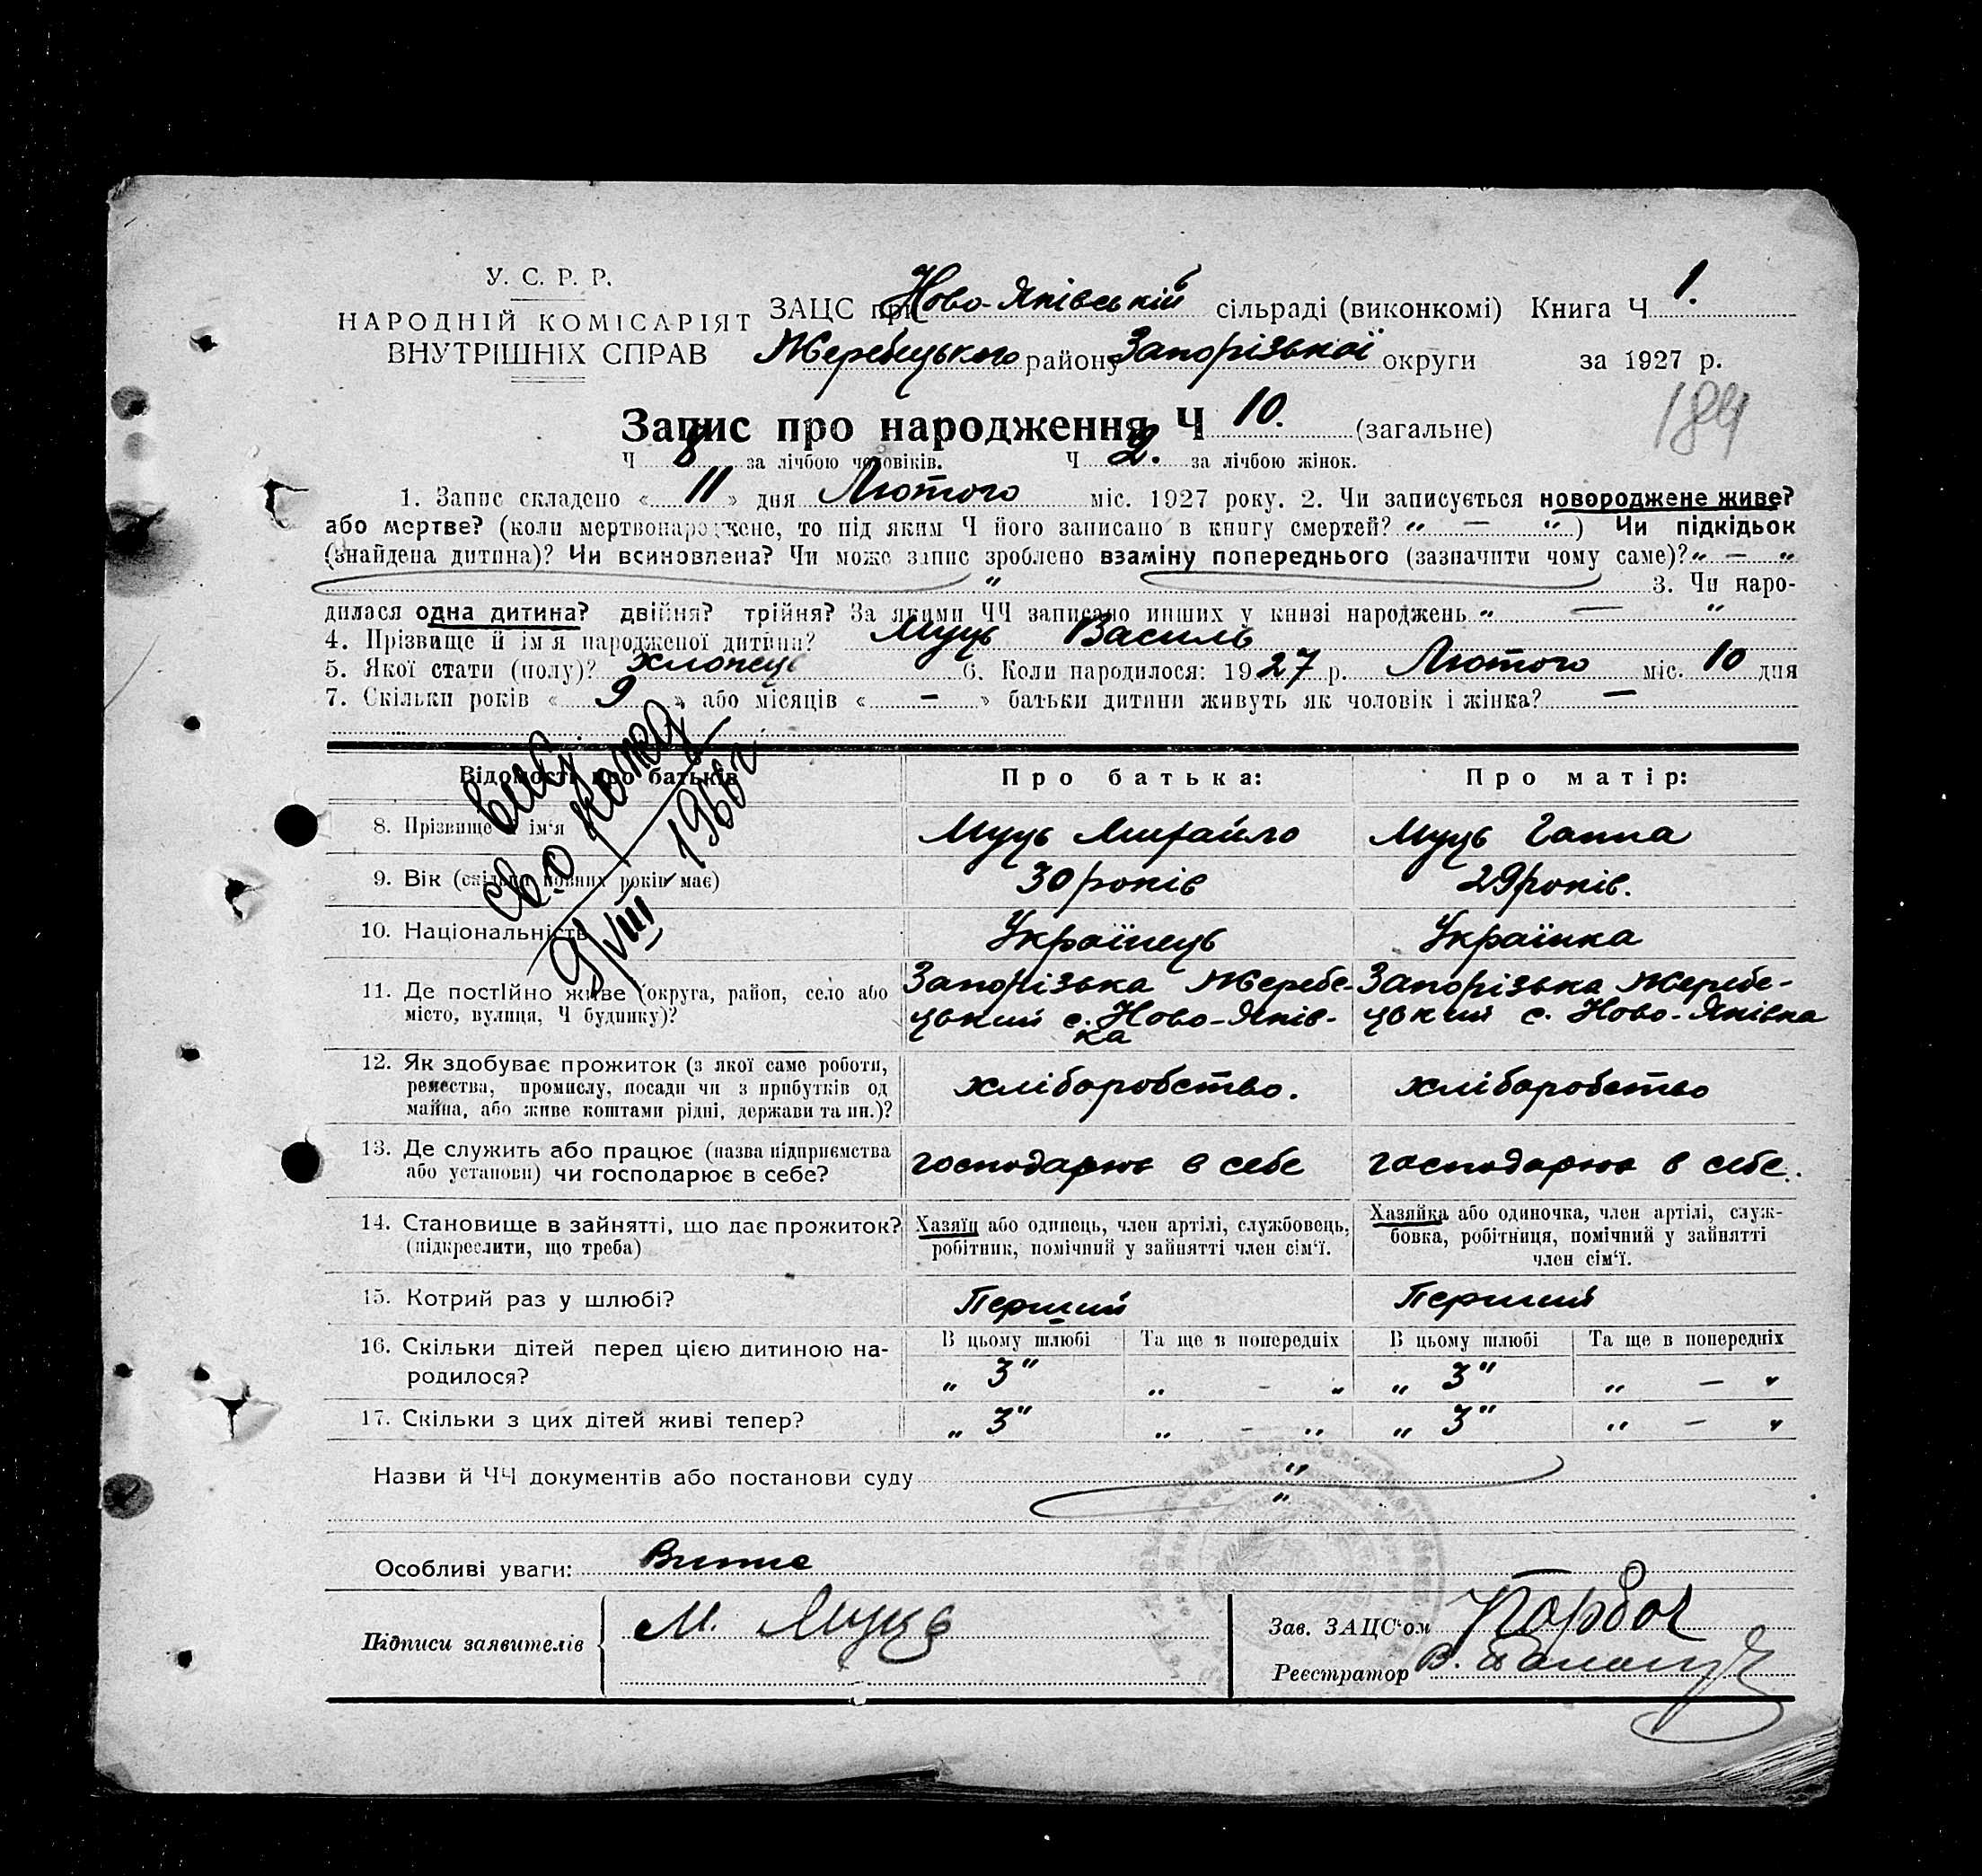 У. С. Р. Р.
НАРОДНІЙ КОМІСАРІЯТ
ВНУТРІШНІХ СПРАВ
ЗАЦС при Ново-Яківській сільраді (виконкомі) Книга Ч 1.
Жеребецького району Запорізької округи за 1927 р.
184
Запис про народження Ч 10. (загальне)
Ч 8 за лічбою чоловіків. Ч 2. за лічбою жінок.
1. Запис складено « 11 » дня Лютого міс. 1927 року. 2. Чи записується новороджене живе?
або мертве? (коли мертвонароджене, то під яким Ч його записано в книгу смертей? „ — “) Чи підкідьок
(знайдена дитина)? Чи всиновлена? Чи може запис зроблено взаміну попереднього (зазначити чому саме)? „ — “
„ 3. Чи наро-
дилася одна дитина? двійня? трійня? За якими ЧЧ записано инших у книзі народжень „ — “
4. Прізвище й ім'я народженої дитини? Муць Василь
5. Якої стати (полу)? хлопець 6. Коли народилося: 1927 р. Лютого міс. 10 дня
7. Скільки років « 9 » або місяців « — » батьки дитини живуть як чоловік і жінка? —
9/VIII 1966 г
Відомості про батьків Про батька: Про матір:
8. Прізвище й ім'я Муць Михайло Муць Ганна
9. Вік (скільки повних років має) 30 років 29 років.
10. Національність Українець Українка
11. Де постійно живе (округа, район, село або
місто, вулиця, Ч будинку)?
Запорізька Жеребе-
цький с. Ново-Яків-
ка
Запорізька Жеребе-
цький с. Ново-Яківка
12. Як здобуває прожиток (з якої саме роботи,
ремества, промислу, посади чи з прибутків од
майна, або живе коштами рідні, держави та ин.)?
хліборобство. хліборобство
13. Де служить або працює (назва підприємства
або установи) чи господарює в себе?
господарює в себе господарює в себе.
14. Становище в зайнятті, що дає прожиток?
(підкреслити, що треба)
Хазяїн або одинець, член артілі, службовець,
робітник, помічний у зайнятті член сім'ї.
Хазяйка або одиночка, член артілі, служ-
бовка, робітниця, помічний у зайнятті
член сім'ї.
15. Котрий раз у шлюбі? Перший Перший
16. Скільки дітей перед цією дитиною на-
родилося?
В цьому шлюбі Та ще в попередніх В цьому шлюбі Та ще в попередніх
„ 3 “ „ — “ „ 3 “ „ — “
17. Скільки з цих дітей живі тепер? „ 3 “ „ — “ „ 3 “ „ — “
Назви й ЧЧ документів або постанови суду „
„
Особливі уваги:
Підписи заявителів М. Муць
Зав. ЗАЦС'ом
Реєстратор В.